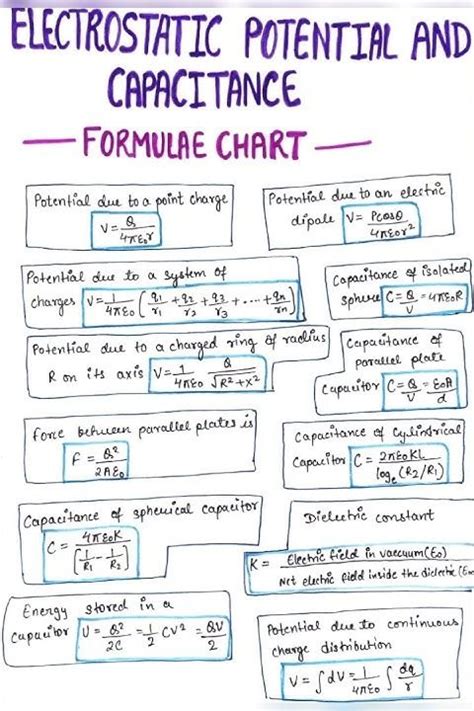 ELECTROSTATIC POTENTIAL AND
CAPACITANCE
— FORMULAE CHART —
Potential due to a point charge
V = Q / 4πε₀r
Potential due to an electric
dipole V = Pcosθ / 4πε₀r²
Potential due to a system of
charges V = 1/4πε₀ (q₁/r₁ + q₂/r₂ + q₃/r₃ + .... + qₙ/rₙ)
Capacitance of isolated
sphere C = Q/V = 4πε₀R
Potential due to a charged ring of radius
R on its axis V = 1/4πε₀ Q/√R²+x²
Capacitance of
parallel plate
Capacitor C = Q/V = ε₀A/d
Force between parallel plates is
F = Q²/2Aε₀
Capacitance of Cylindrical
Capacitor C = 2πε₀KL / logₑ(R₂/R₁)
Capacitance of spherical capacitor
C = 4πε₀K / [1/R₁ - 1/R₂]
Dielectric constant
K = Electric field in vaccum(E₀) / Net electric field inside the dielectric
Energy stored in a
Capacitor U = Q²/2C = 1/2 CV² = QV/2
Potential due to continuous
charge distribution
V = ∫dV = 1/4πε₀ ∫ dq/r